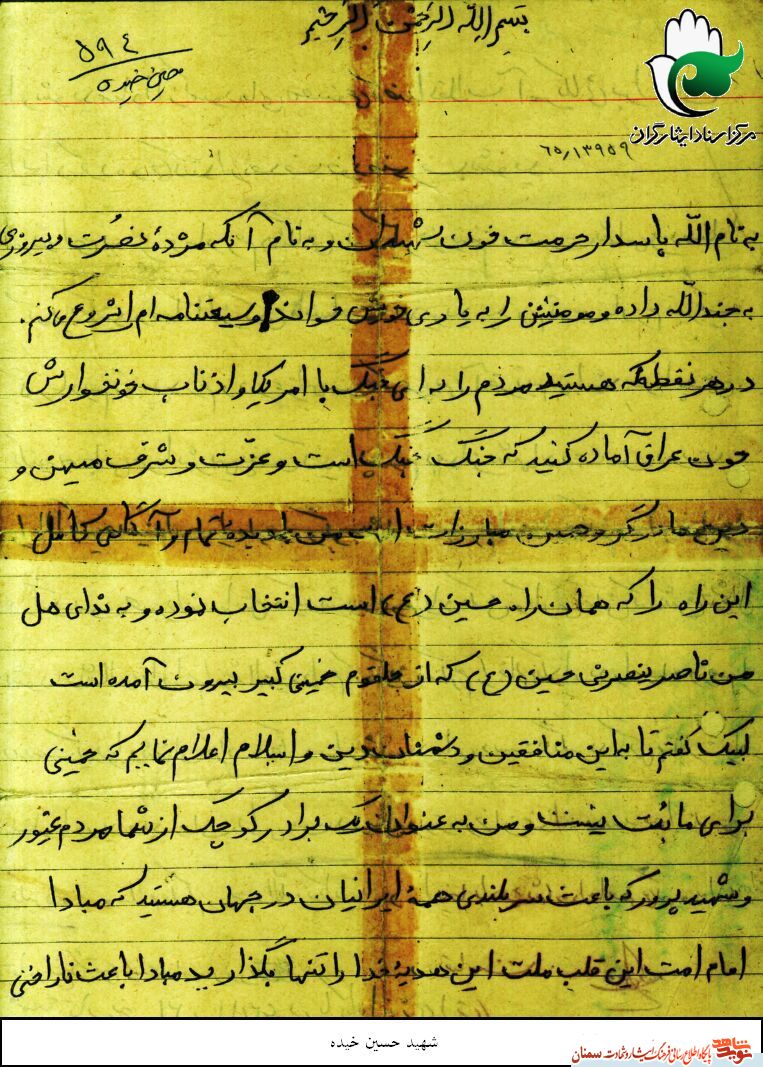 بسم الله الرحمن الرحیم
۵۹۴
حسین خیده
مرکز اسناد ایثارگران
۶۵٫۱۳۹۵۹
به نام الله پاسدار حرمت خون شهیدان و به نام آنکه مژدهٔ نصرت و پیروزی
به جندالله داده و مومنینش را به یاری خویش خواند وصیتنامه ام را شروع می کنم.
در هر نقطه که هستید مردم را برای جنگ با امریکا و اذناب خونخوارش
چون عراق آماده کنید که جنگ جنگ است و عزّت و شرف میهن و
دین ما در گرو همین مبارزات است من با دیده تمام و آگاهی کامل
این راه را که همان راه حسین (ع) است انتخاب نموده و به ندای هل
من ناصر ینصرنی حسین (ع) که از حلقوم خمینی کبیر بیرون آمده است
لبیک گفتم تا به این منافقین و دشمنان دین و اسلام اعلام نمایم که خمینی
برای ما بُت نیست و من به عنوان یک برادر کوچک از شما مردم غیور
و شهید پرور که باعث سربلندی همهٔ ایرانیان در جهان هستید که مبادا
امام امت این قلب ملت این هدیهٔ خدا را تنها بگذارید مبادا باعث ناراضی
شهید حسین خیده
نوید شاهد
پایگاه اطلاع رسانی فرهنگ ایثار و شهادت سمنان